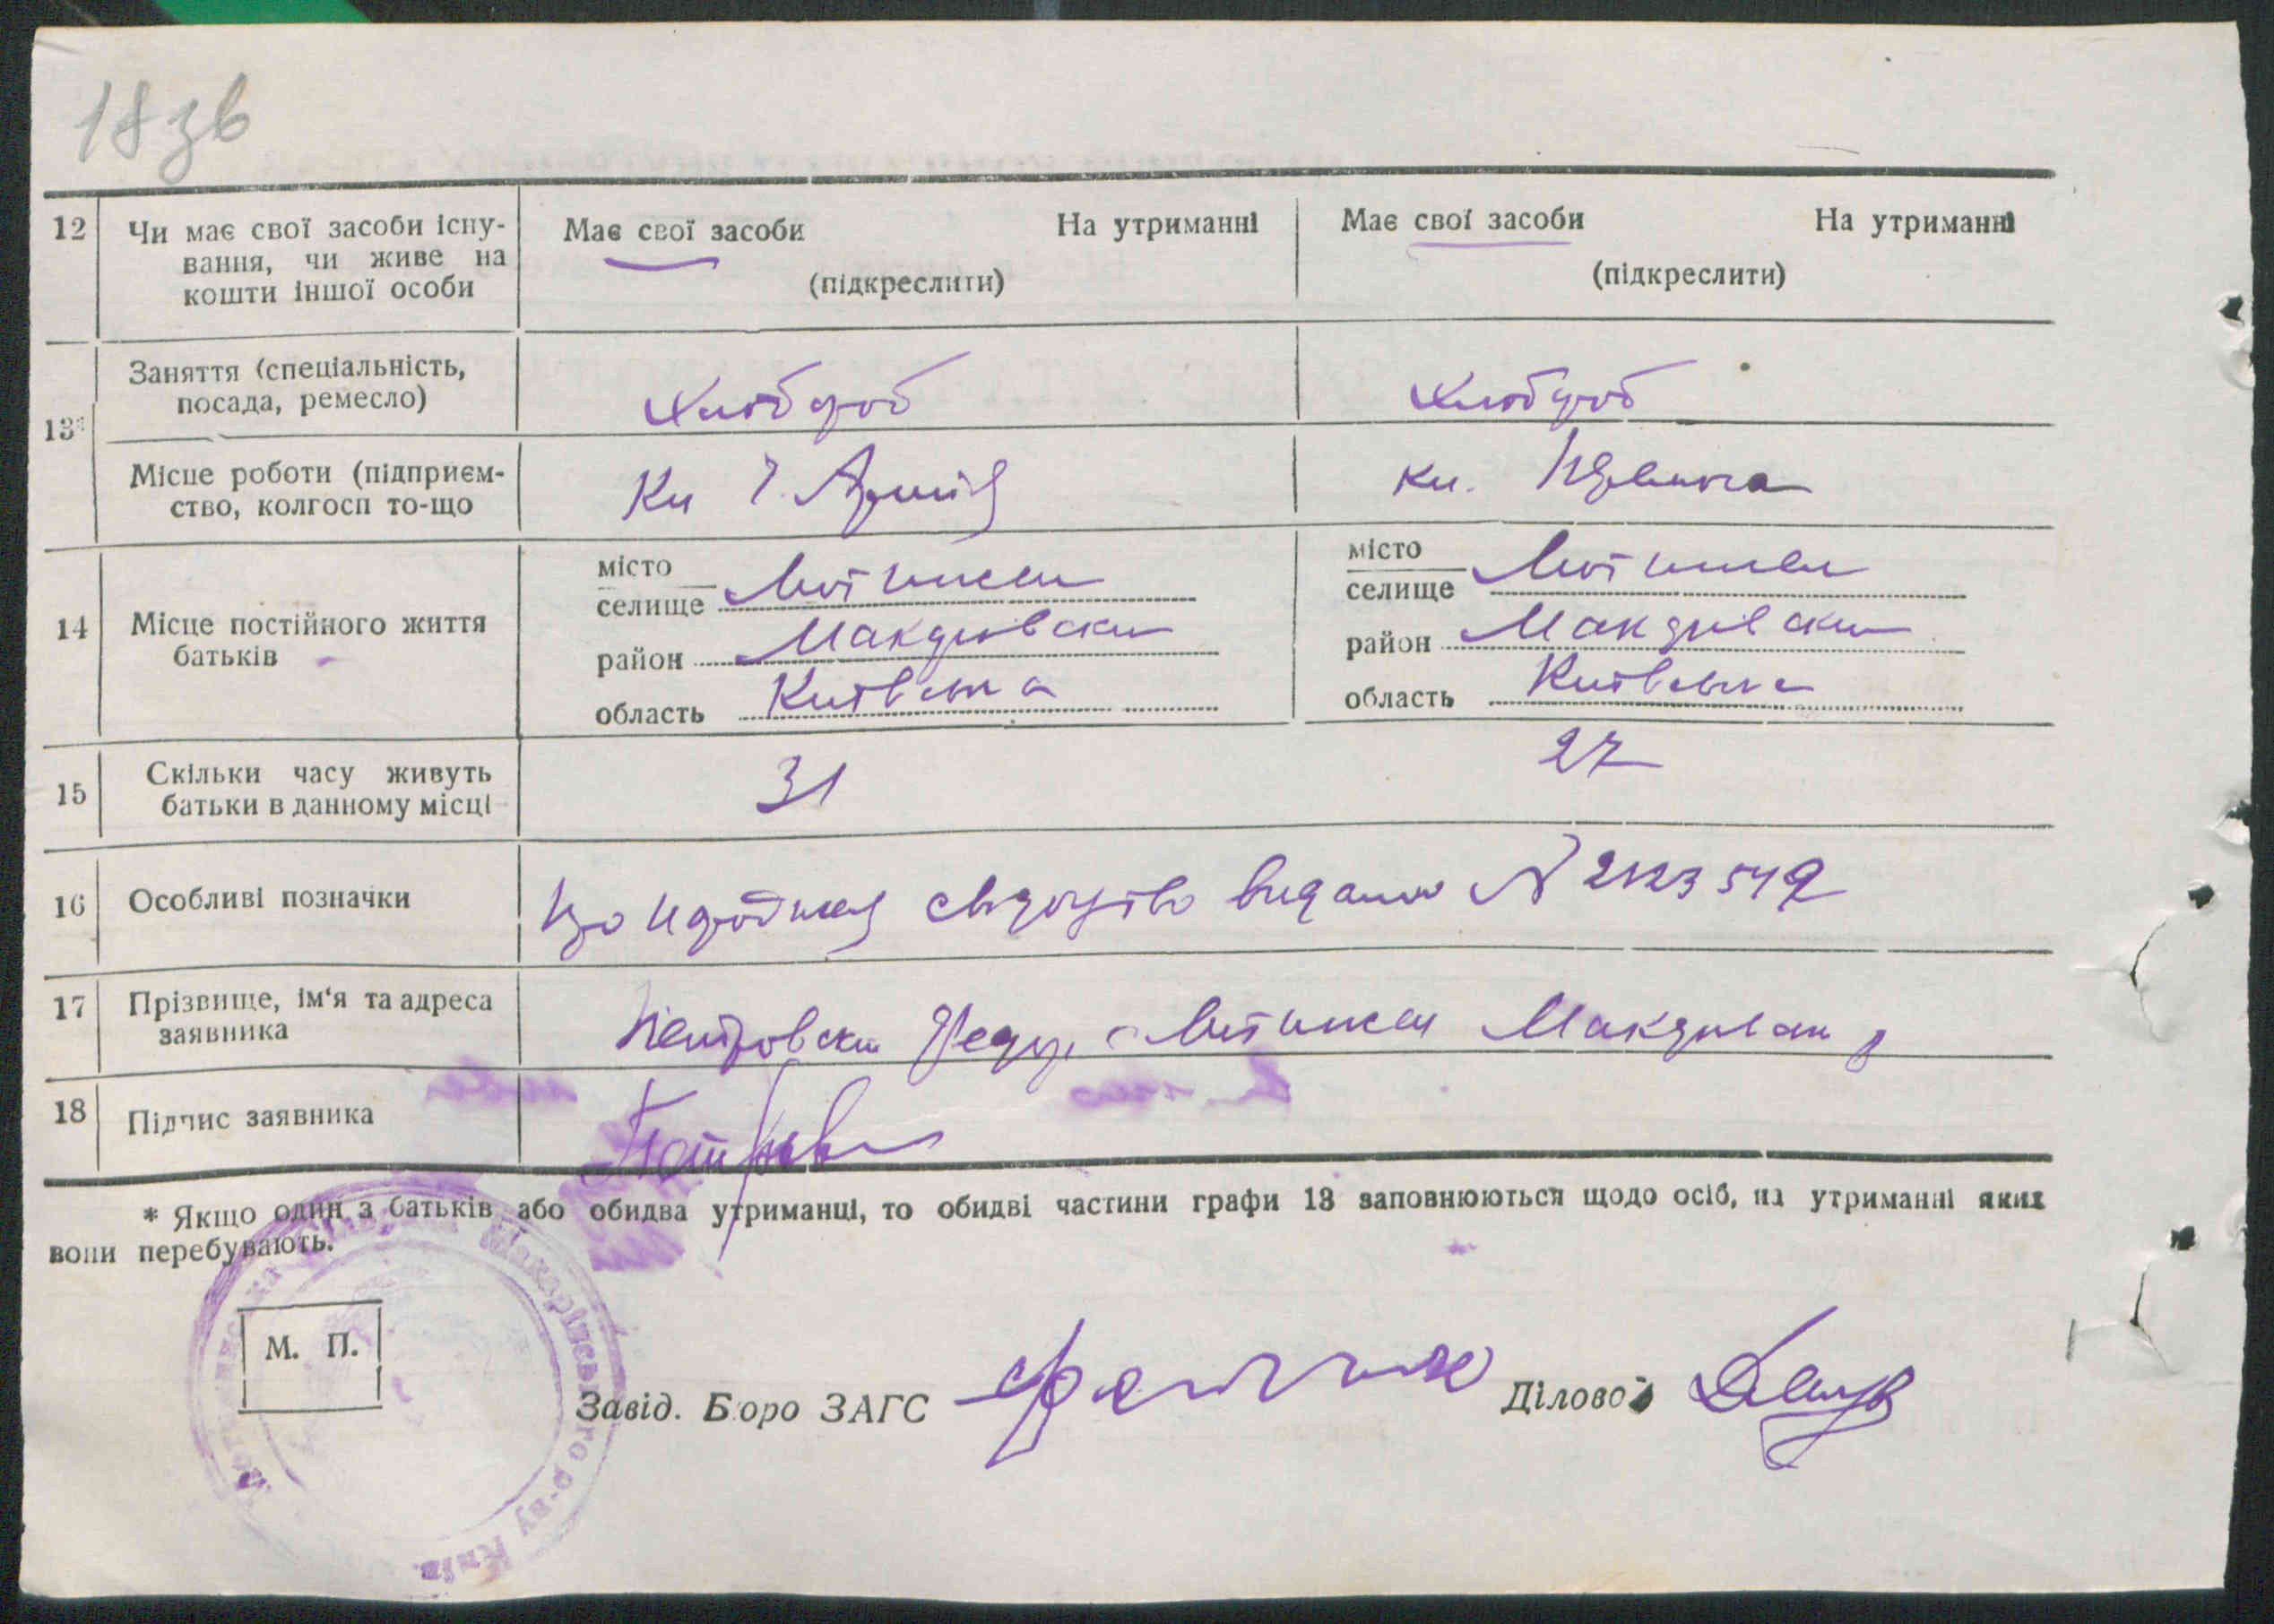 18 зв
12 Чи має свої засоби існу- Має свої засоби На утриманні Має свої засоби На утриманні
вання, чи живе на
кошти іншої особи (підкреслити) (підкреслити)
13* Заняття (спеціальність,
посада, ремесло) Хлібороб Хлібороб
Місце роботи (підприєм-
ство, колгосп то-що Кл Ч. Армія кл.
14 Місце постійного життя
батьків
місто
селище Мотижин
район Макарівськ
область Київська
місто
селище Мотижин
район Макарівськ
область Київська
15 Скільки часу живуть
батьки в данному місці 31 27
16 Особливі позначки свідоцтво видано № 2123549
17 Прізвище, ім‘я та адреса
заявника Петровськ Федір с Мотижин Макарівськ р
18 Підпис заявника
* Якщо один з батьків або обидва утриманці, то обидві частини графи 13 заповнюються щодо осіб, на утриманні яких
вони перебувають.
Макарівського р-ну Київ.
М. П.
Завід. Бюро ЗАГС Діловод